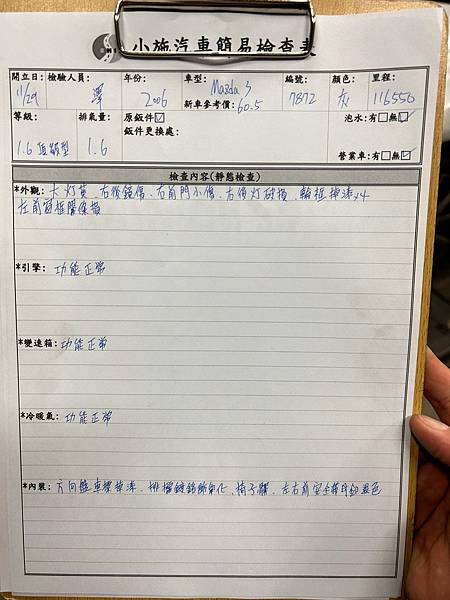 小施汽車簡易檢查表
開立日: 檢驗人員: 年份: 車型: Mazda 3 編號: 顏色: 里程:
11/29 澤 2006 新車參考價: 60.5 7872 灰 116550
等級: 排氣量: 原鈑件☑ 泡水:有□無☑
鈑件更換處:
1.6 頂級型 1.6 營業車:有□無☑
檢查內容(靜態檢查)
*外觀: 大灯黃、右後鏡傷、右前門小傷、右後灯破損、輪框掉漆x4
左前窗框膠條損
*引擎: 功能正常
*變速箱: 功能正常
*冷暖氣: 功能正常
*內裝: 方向盤車標掉漆、排檔鍍鉻飾氧化、椅子髒、左右前安全帶卸鈕退色